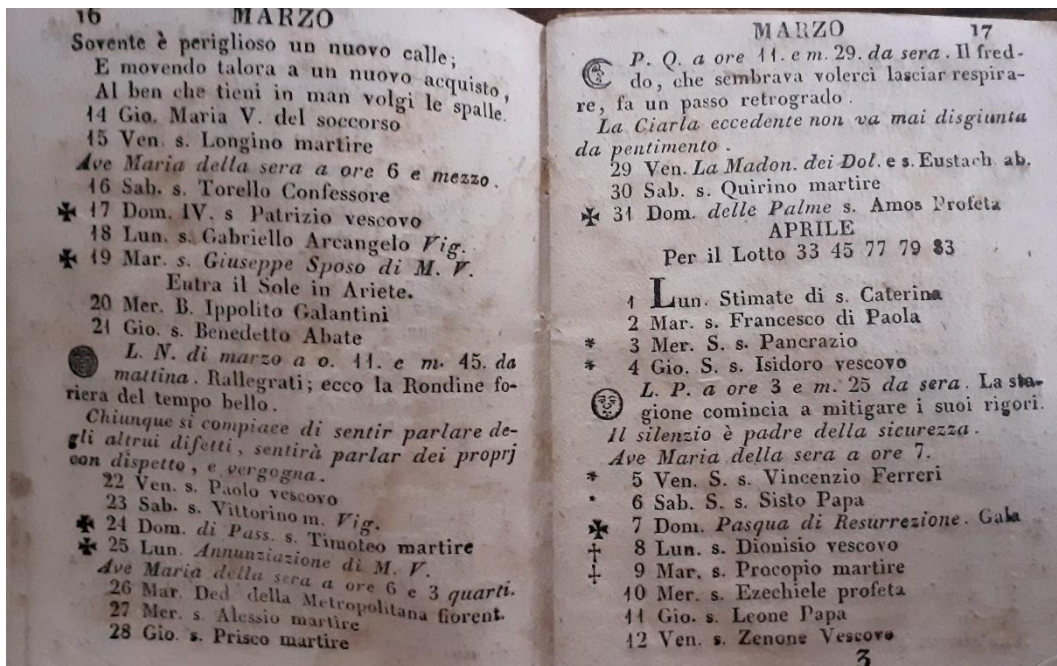 16 MARZO
Sovente è periglioso un nuovo calle;
E movendo talora a un nuovo acquisto,
Al ben che tieni in man volgi le spalle.
14 Gio. Maria V. del soccorso
15 Ven. s. Longino martire
Ave Maria della sera a ore 6 e mezzo.
16 Sab. s. Torello Confessore
✠ 17 Dom. IV. s Patrizio vescovo
18 Lun. s. Gabriello Arcangelo Vig.
✠ 19 Mar. s. Giuseppe Sposo di M. V.
Entra il Sole in Ariete.
20 Mer. B. Ippolito Galantini
21 Gio. s. Benedetto Abate
L. N. di marzo a o. 11. e m. 45. da
mattina. Rallegrati; ecco la Rondine fo-
riera del tempo bello.
Chiunque si compiace di sentir parlare de-
gli altrui difetti, sentirà parlar dei proprj
con dispetto, e vergogna.
22 Ven. s. Paolo vescovo
23 Sab. s. Vittorino m. Vig.
✠ 24 Dom. di Pass. s. Timoteo martire
✠ 25 Lun. Annunziazione di M. V.
Ave Maria della sera a ore 6 e 3 quarti.
26 Mar. Ded della Metropolitana fiorent.
27 Mer. s. Alessio martire
28 Gio. s. Prisco martire
MARZO 17
P. Q. a ore 11. e m. 29. da sera. Il fred-
do, che sembrava volerci lasciar respira-
re, fa un passo retrogrado.
La Ciarla eccedente non va mai disgiunta
da pentimento.
29 Ven. La Madon. dei Dol. e s. Eustach. ab.
30 Sab. s. Quirino martire
✠ 31 Dom. delle Palme s. Amos Profeta
APRILE
Per il Lotto 33 45 77 79 83
1 Lun. Stimate di s. Caterina
2 Mar. s. Francesco di Paola
* 3 Mer. S. s. Pancrazio
* 4 Gio. S. s. Isidoro vescovo
L. P. a ore 3 e m. 25 da sera. La sta-
gione comincia a mitigare i suoi rigori.
Il silenzio è padre della sicurezza.
Ave Maria della sera a ore 7.
* 5 Ven. S. s. Vincenzio Ferreri
* 6 Sab. S. s. Sisto Papa
✠ 7 Dom. Pasqua di Resurrezione. Gala
† 8 Lun. s. Dionisio vescovo
† 9 Mar. s. Procopio martire
10 Mer. s. Ezechiele profeta
11 Gio. s. Leone Papa
12 Ven. s. Zenone Vescovo
3